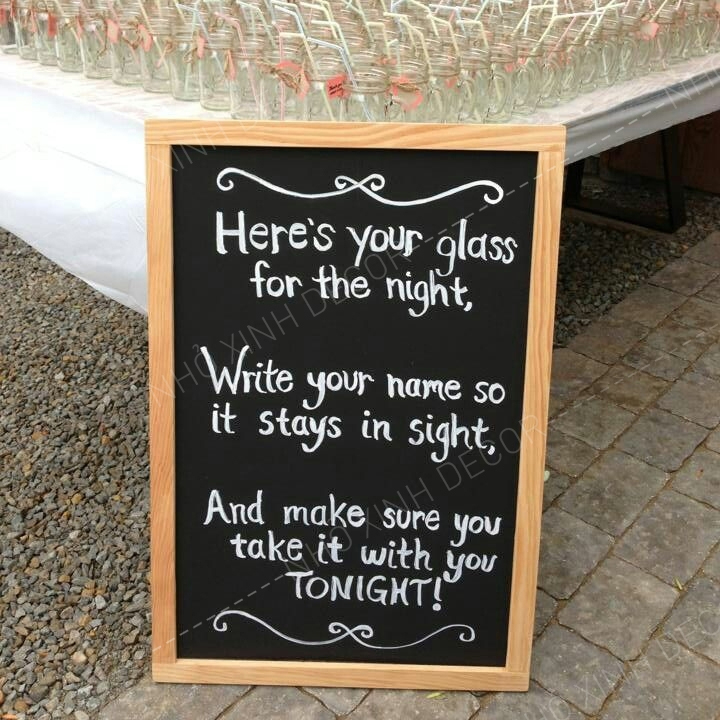 Here's your glass
for the night,
Write your name so
it stays in sight,
And make sure you
take it with you
TONIGHT!
NHỎ XINH DECOR
NHỎ XINH DECOR